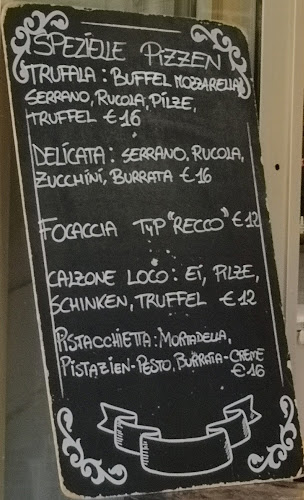 SPEZIELLE PIZZEN
TRUFALA: BUFFEL MOZZARELLA
SERRANO, RUCOLA, PILZE,
TRUFFEL €16
DELICATA: SERRANO, RUCOLA,
ZUCCHINI, BURRATA €16
FOCACCIA TYP "RECCO" €12
CALZONE LOCO: EI, PILZE,
SCHINKEN, TRUFFEL €12
PISTACCHIETTA: MORTADELLA,
PISTAZIEN-PESTO, BURRATA-CREME
€16